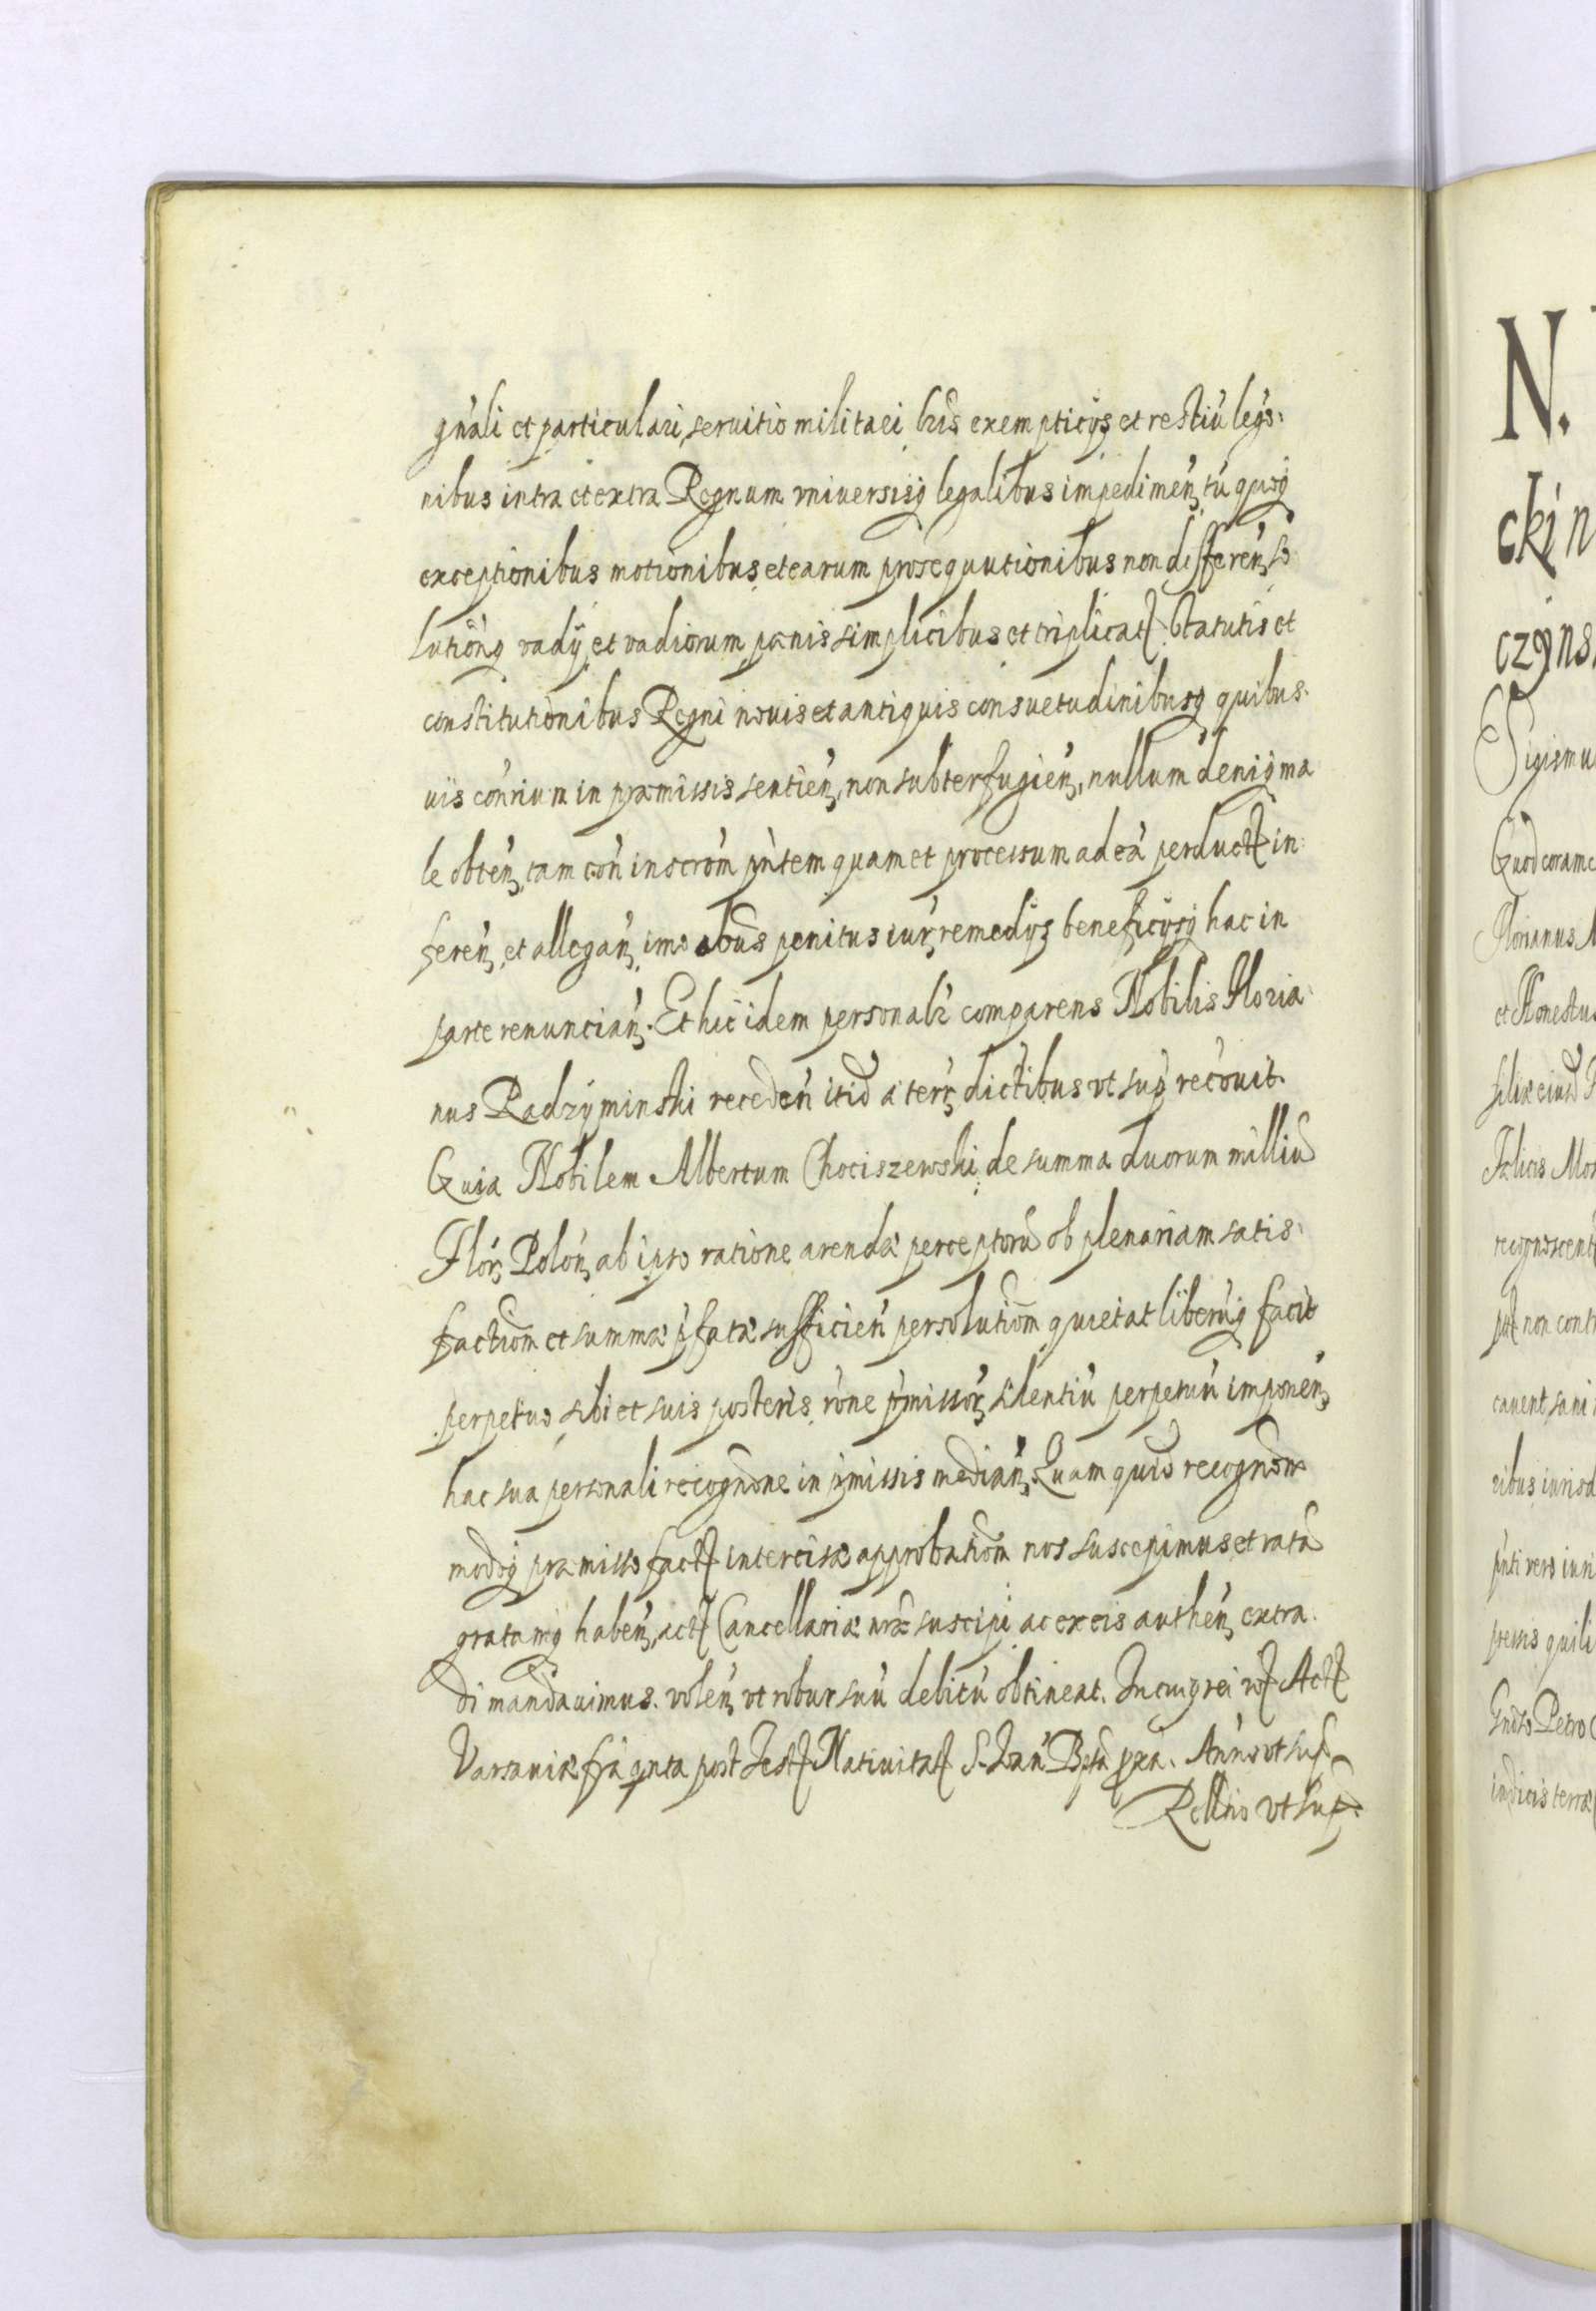 gńali et particulari, seruitio militari lris exempticijs et restiú legó:
nibus intra et extra Regnum vniuersisq legalibus impedimeń, tú quisq
exceptionibus motionibus, et earum prosequutionibus non differeń, so
lutioñq vadÿ, et vadiorum pænis simplicibus et triplicat. Statutis et
constitutionibus Regni nouis et antiquis consuetudinibusq quibus.
uis cońrium in præmissis sentień, non subterfugień, nullum denig ma
le obteń, tam coń inscrom pńtem quam et processum ad eá perduct in
fereń, et allegań, imo obus penitus iur remedijs beneficijsq hac in
parte renuncián. Et hic idem personalr comparens Nobilis Floria
nus Radzÿminski receden itid a terr dictibus vt sup recóuit.
Quia Nobilem Albertum Chociszewski de summa duorum milliu
Flór Polóń ab ipso ratione arendæ perceptoru ob plenariam satis:
factiom et summæ pfatæ sufficień persolutiom quietat liberúq facit
perpetuo, sibi et suis posteris, róne pmissór silentiú perpetuú imponeń
hac sua personali recognóne in pmissis mediań. Quam quid recognom
modoq præmisso fact intercisæ approbatiom nos suscepimus, et rata
gratamq habeń, act Cancellariæ nræ suscipi ac ex eis autheń extra.
di mandauimus. voleń vt robur suú debitú obtineat. In cuiq rei rf Act
Varsauiæ fria qnta post Fest Natiuitat S. Ioań Bptæ pxa. Anno vt sup
Rellnis vt sup.
N.
cki n
czÿns
Sigismu
Quod coram
Florianus
et Honestus
filiæ eiusd
Felicis Mos
recognoscent
non cont
cauent, sani
ribus iurisd
pńti vero iuri
Petro
iudicis terræ